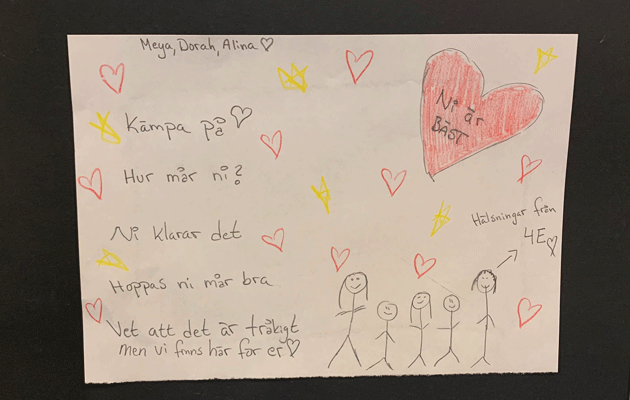 Meya, Dorah, Alina
Kämpa på
Hur mår ni?
Ni klarar det
Hoppas ni mår bra
Vet att det är tråkigt
men vi finns här för er
Ni är
BÄST
Hälsningar från
4E